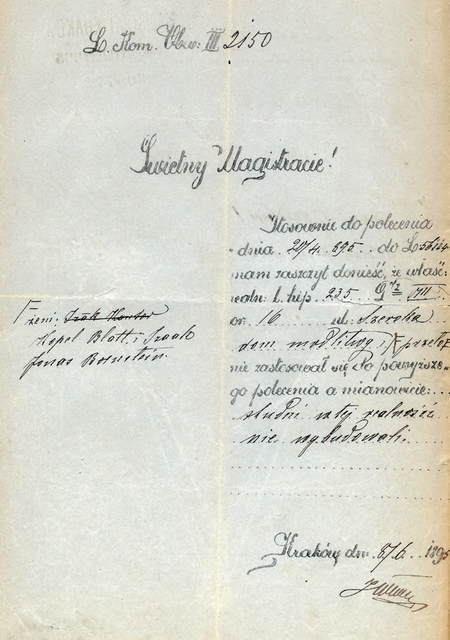 L. Kom. Obw. III. 2150
Świetny Magistracie!
Stosownie do polecenia
dnia 20/4 895 do L
mam zaszczyt donieść, że właść:
realn: l. hip. 235 Dz VIII
or. 16 ul. Szeroka
dom modlitwy i przeło
nie zastosował się do powyższe-
go polecenia a mianowicie:
studni w tej realności
nie wybudowali.
żeni: Izak
Kopel Blatt i Izaak
Jonas Bornstein
Kraków dn. 8/6 1895